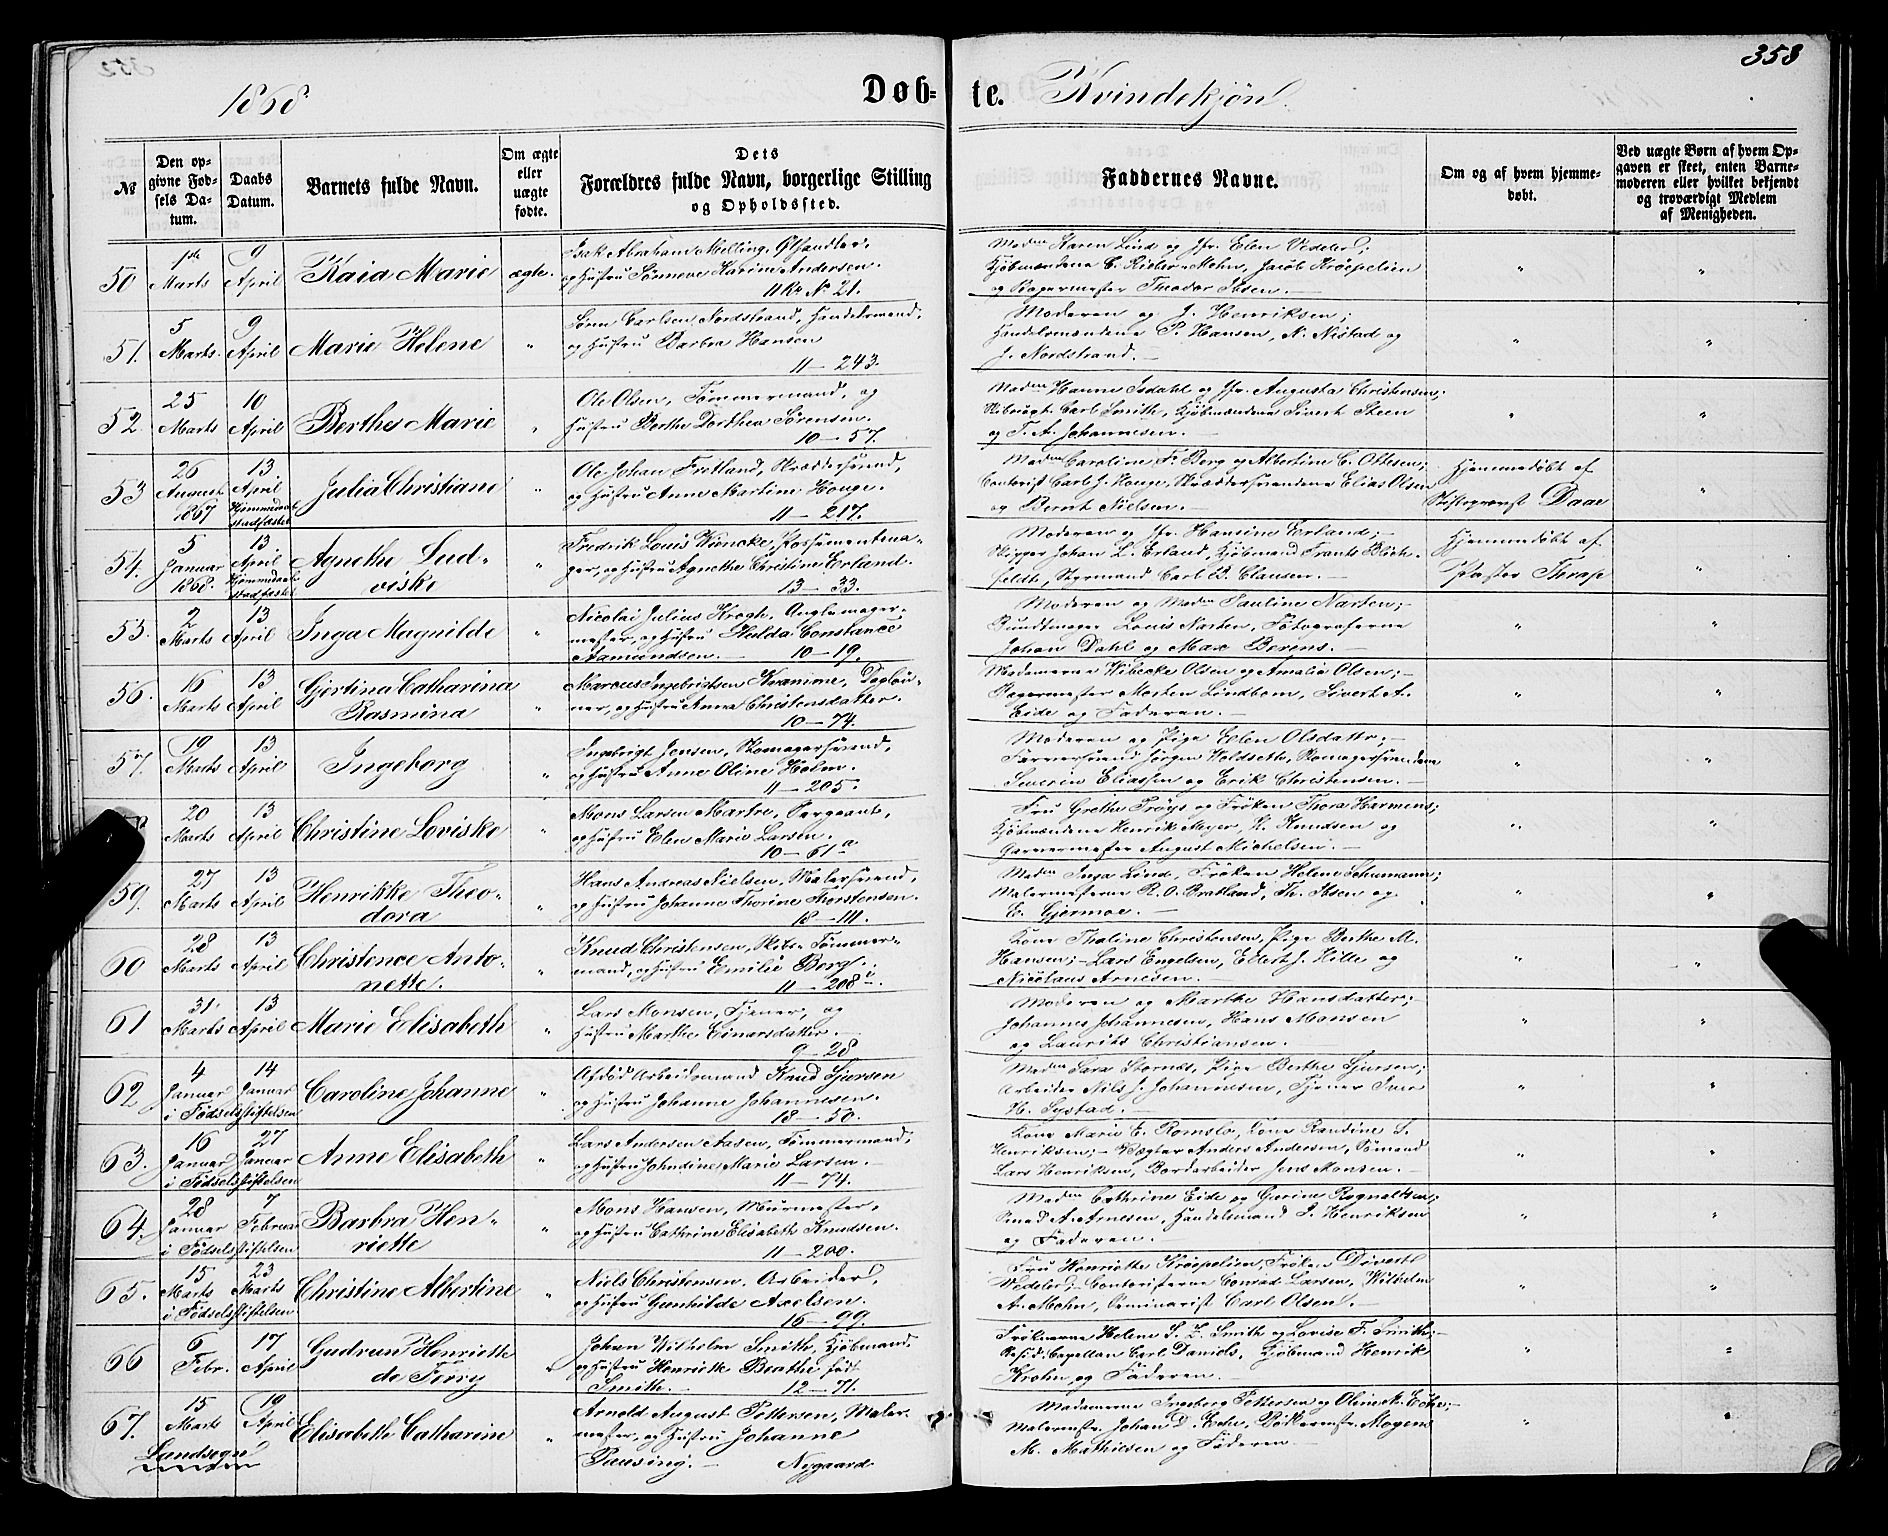 358
1868.
Døb-te. Kvindekjøn.
№
Den opgivne Fødsels Datum.
Daabs Datum.
Barnets fulde Navn.
Om ægte eller uægte fødte.
Dets Forældres fulde Navn, borgerlige Stilling og Opholdssted.
Faddernes Navne.
Om og af hvem hjemmedøbt.
Ved uægte Børn af hvem Opgaven er skeet, enten Barnemoderen eller hvilket bekjendt og troværdigt Medlem af Menigheden.
50 1ste Marts 9 April Kaia Marie ægte.
Isak Abrahams Melling, Ølhandler,
og Hustru Sønneve Karine Andersen.
11 Rd. No 21.
Madm Karen Lind og Jfr. Elen Vedeler;
Kjøbmændene C. Rieber-Mohn, Jacob Krøepelien
og Bagermester Theodor Ibsen.
51. 5 Marts. 9 April Marie Helene "
Søren Carlsen Nordstrand, Handelsmand,
og Hustru Barbra Hansen
11 - 243.
Moderen og J. Henriksen;
Handelsmændene P. Hansen, N. Nistad og
J. Nordstrand.
52. 25 Marts 10 April Berthe Marie "
Ole Olsen, Tømmermand, og
Hustru Berthe Dorthea Sørensen.
10 - 57.
Madm Hanne Isdahl og Jfr. Augusta Christensen;
Carl Smith, Kjøbmændene Sivert Steen
og T. A. Johannesen.
53 26 August 1867 13 April Hjemmedaab stadfæstet Julia Christiane "
Ole Johan Fretland, Skræddersvend,
og Hustru Anne Martine Houge.
11 - 217.
Madm Caroline F. Berg og Albertine C. Ottesen;
Contorist Carl J. Houge, Skræddersvendene Elias Olsen
og Bernt Nielsen.
Hjemmedøbt af
Stiftsprovst Daae
54. 5 Januar 1868. 13 April Hjemmedaab stadfæstet Agnethe Lud-
viske "
Fredrik Louis Wencke, Possementma-
ger, og Hustru Agnethe Christine Erland.
13 - 33.
Moderen og Jfr. Hansine Erland;
Skipper Johan L. Erland, Kjøbmand Frants Blich-
feldt, Styrmand Carl B. Clausen.
Hjemmedøbt af
Pastor Thrap
55. 2 Marts 13 April Inga Magnilde "
Nicolai Julius Krogh,
mester, og Hustru Hulda Constance
Aamundsen. 10 - 19.
Moderen og Madm Pauline Narten;
Bundtmager Louis Narten, Fotograferne
Johan Dahl og Max Berens.
56. 16 Marts 13 April Gjertina Catharina
Rasmina "
Marcus Ingebrigtsen Kramme, Dagløn-
ner, og Hustru Anna Christensdatter.
10 - 74.
Madamerne Wibecke Olsen og Amalia Olsen;
Bagermester Morten Lindbom, Sivert A.
Eide og Faderen.
57. 19 Marts 13 April Ingeborg "
Ingebrigt Jensen, Skomagersvend,
og Hustru Anne Oline Holm.
11 - 205.
Moderen og Pige Elen Olsdatter;
Farversvend Jørgen Holdseth, Skomagersvendene
Severin Eliassen og Erik Christensen.
20 Marts 13 April Christine Loviske "
Mons Larsen Martre, Sergeant,
og Hustru Elen Marie Larsen.
10 - 61a
Fru Grethe Trøys og Frøken Thora Harmens;
Kjøbmændene Henrik Meyer, K. Knudsen og
Garvermester August Michelsen.
59. 27 Marts 13 April Henrikke Theo-
dora "
Hans Andreas Nielsen, Malersvend,
og Hustru Johanne Thorine Thorstensen.
18 - 111.
Madm Inga Lind, Frøken Helene Schumann;
Malermesterne R. O. Bratland, Th. Ibsen og
E. Gjermoe.
60 28 Marts 13 April Christence Anto-
nette. "
Knud Christensen, Skibs-Tømmer-
mand, og Hustru Emilie Berg.
11 - 208
Kone Thaline Christensen, Pige Berthe M.
Hansen; Lars Engelsen, Ellert J. Hille og
Nicolaus Arnesen.
61 31 Marts 13 April Marie Elisabeth "
Lars Monsen, Tjener, og
Hustru Marthe Einarsdatter.
9 - 28
Moderen og Marthe Hansdatter;
Johannes Johannesen, Hans Monsen
og Laurits Christiansen.
62 4 Januar 14 Januar i Fødselsstiftelsen Caroline Johanne "
Afdød Arbeidsmand Knud Sjursen
og Hustru Johanne Johannesen.
18 - 50.
Madm Sara Stornæs, Pige Berthe Sjursen;
Arbeider Nils J. Johannesen, Tjener Iver
H. Systad.
63. 16 Januar 27 Januar i Fødselsstiftelsen Anne Elisabeth "
Lars Andersen Aasen, Tømmermand,
og Hustru Johndine Marie Larsen.
11 - 74.
Kone Marie E. Romslo, Kone Randine S.
Henriksen; Vægter Anders Andersen, Sømand
Lars Henriksen, Bordarbeider Jens Monsen.
64. 28 Januar 7 Februar i Fødselsstiftelsen Barbra Hen-
riette "
Mons Hansen, Murmester,
og Hustru Cathrine Elisabeth Knudsen.
11 - 200.
Madm Cathrine Eide og Gurine Rognaldsen;
Smed A. Arnesen, Handelsmand J. Henriksen
og Faderen.
65. 15 Marts 23 Marts i Fødselsstiftelsen Christine Albertine "
Niels Christensen, Arbeider,
og Hustru Gunhilde Axelsen.
16 - 99.
Fru Henriette Krøepelien, Frøken Diverth
Vedeler; Contoristerne Conrad Larsen, Wilhelm
A. Mohn, Seminarist Carl Olsen.
66 6 Febr. 17 April Gudrun Henriette
de Ferry "
Johan Wilhelm Smith, Kjøbmand,
og Hustru Henriette Beathe født
Smith. 12 - 71.
Frøknerne Helene S. Z. Smith og Lovise F. Smith;
Resid. Capellan Carl Daniels, Kjøbmand Henrik
Krohn og Faderen.
67. 15 Marts 19 April Elisabeth Catharine "
Landsogn
Arnold August Pettersen, Maler-
mester, og Hustru Johanne
Pausing. Nygaard
Madamerne Ingeborg Pettersen og Oline M. Eche;
Malermester Johan D. Eche, Bødkermstr. Mogens
M. Mathiesen og Faderen.